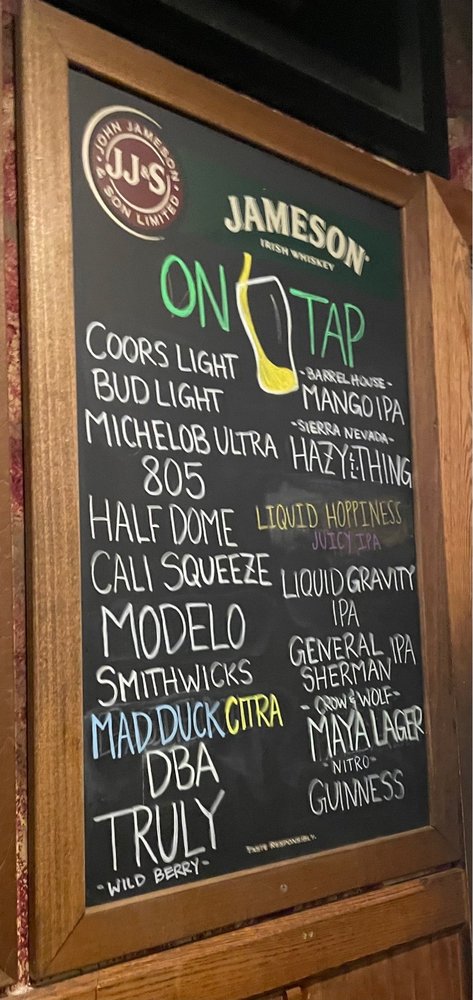 JOHN JAMESON
JJ&S
& SON LIMITED
JAMESON
IRISH WHISKEY
ON TAP
COORS LIGHT
BUD LIGHT
MICHELOB ULTRA
805
HALF DOME
CALI SQUEEZE
MODELO
SMITHWICKS
MAD DUCK CITRA
DBA
TRULY
-WILD BERRY-
-BARREL HOUSE-
MANGO IPA
-SIERRA NEVADA-
HAZY LIL THING
LIQUID HOPPINESS
JUICY IPA
LIQUID GRAVITY
IPA
GENERAL IPA
SHERMAN
-CROW & WOLF-
MAYA LAGER
-NITRO-
GUINNESS
TASTE RESPONSIBLY.